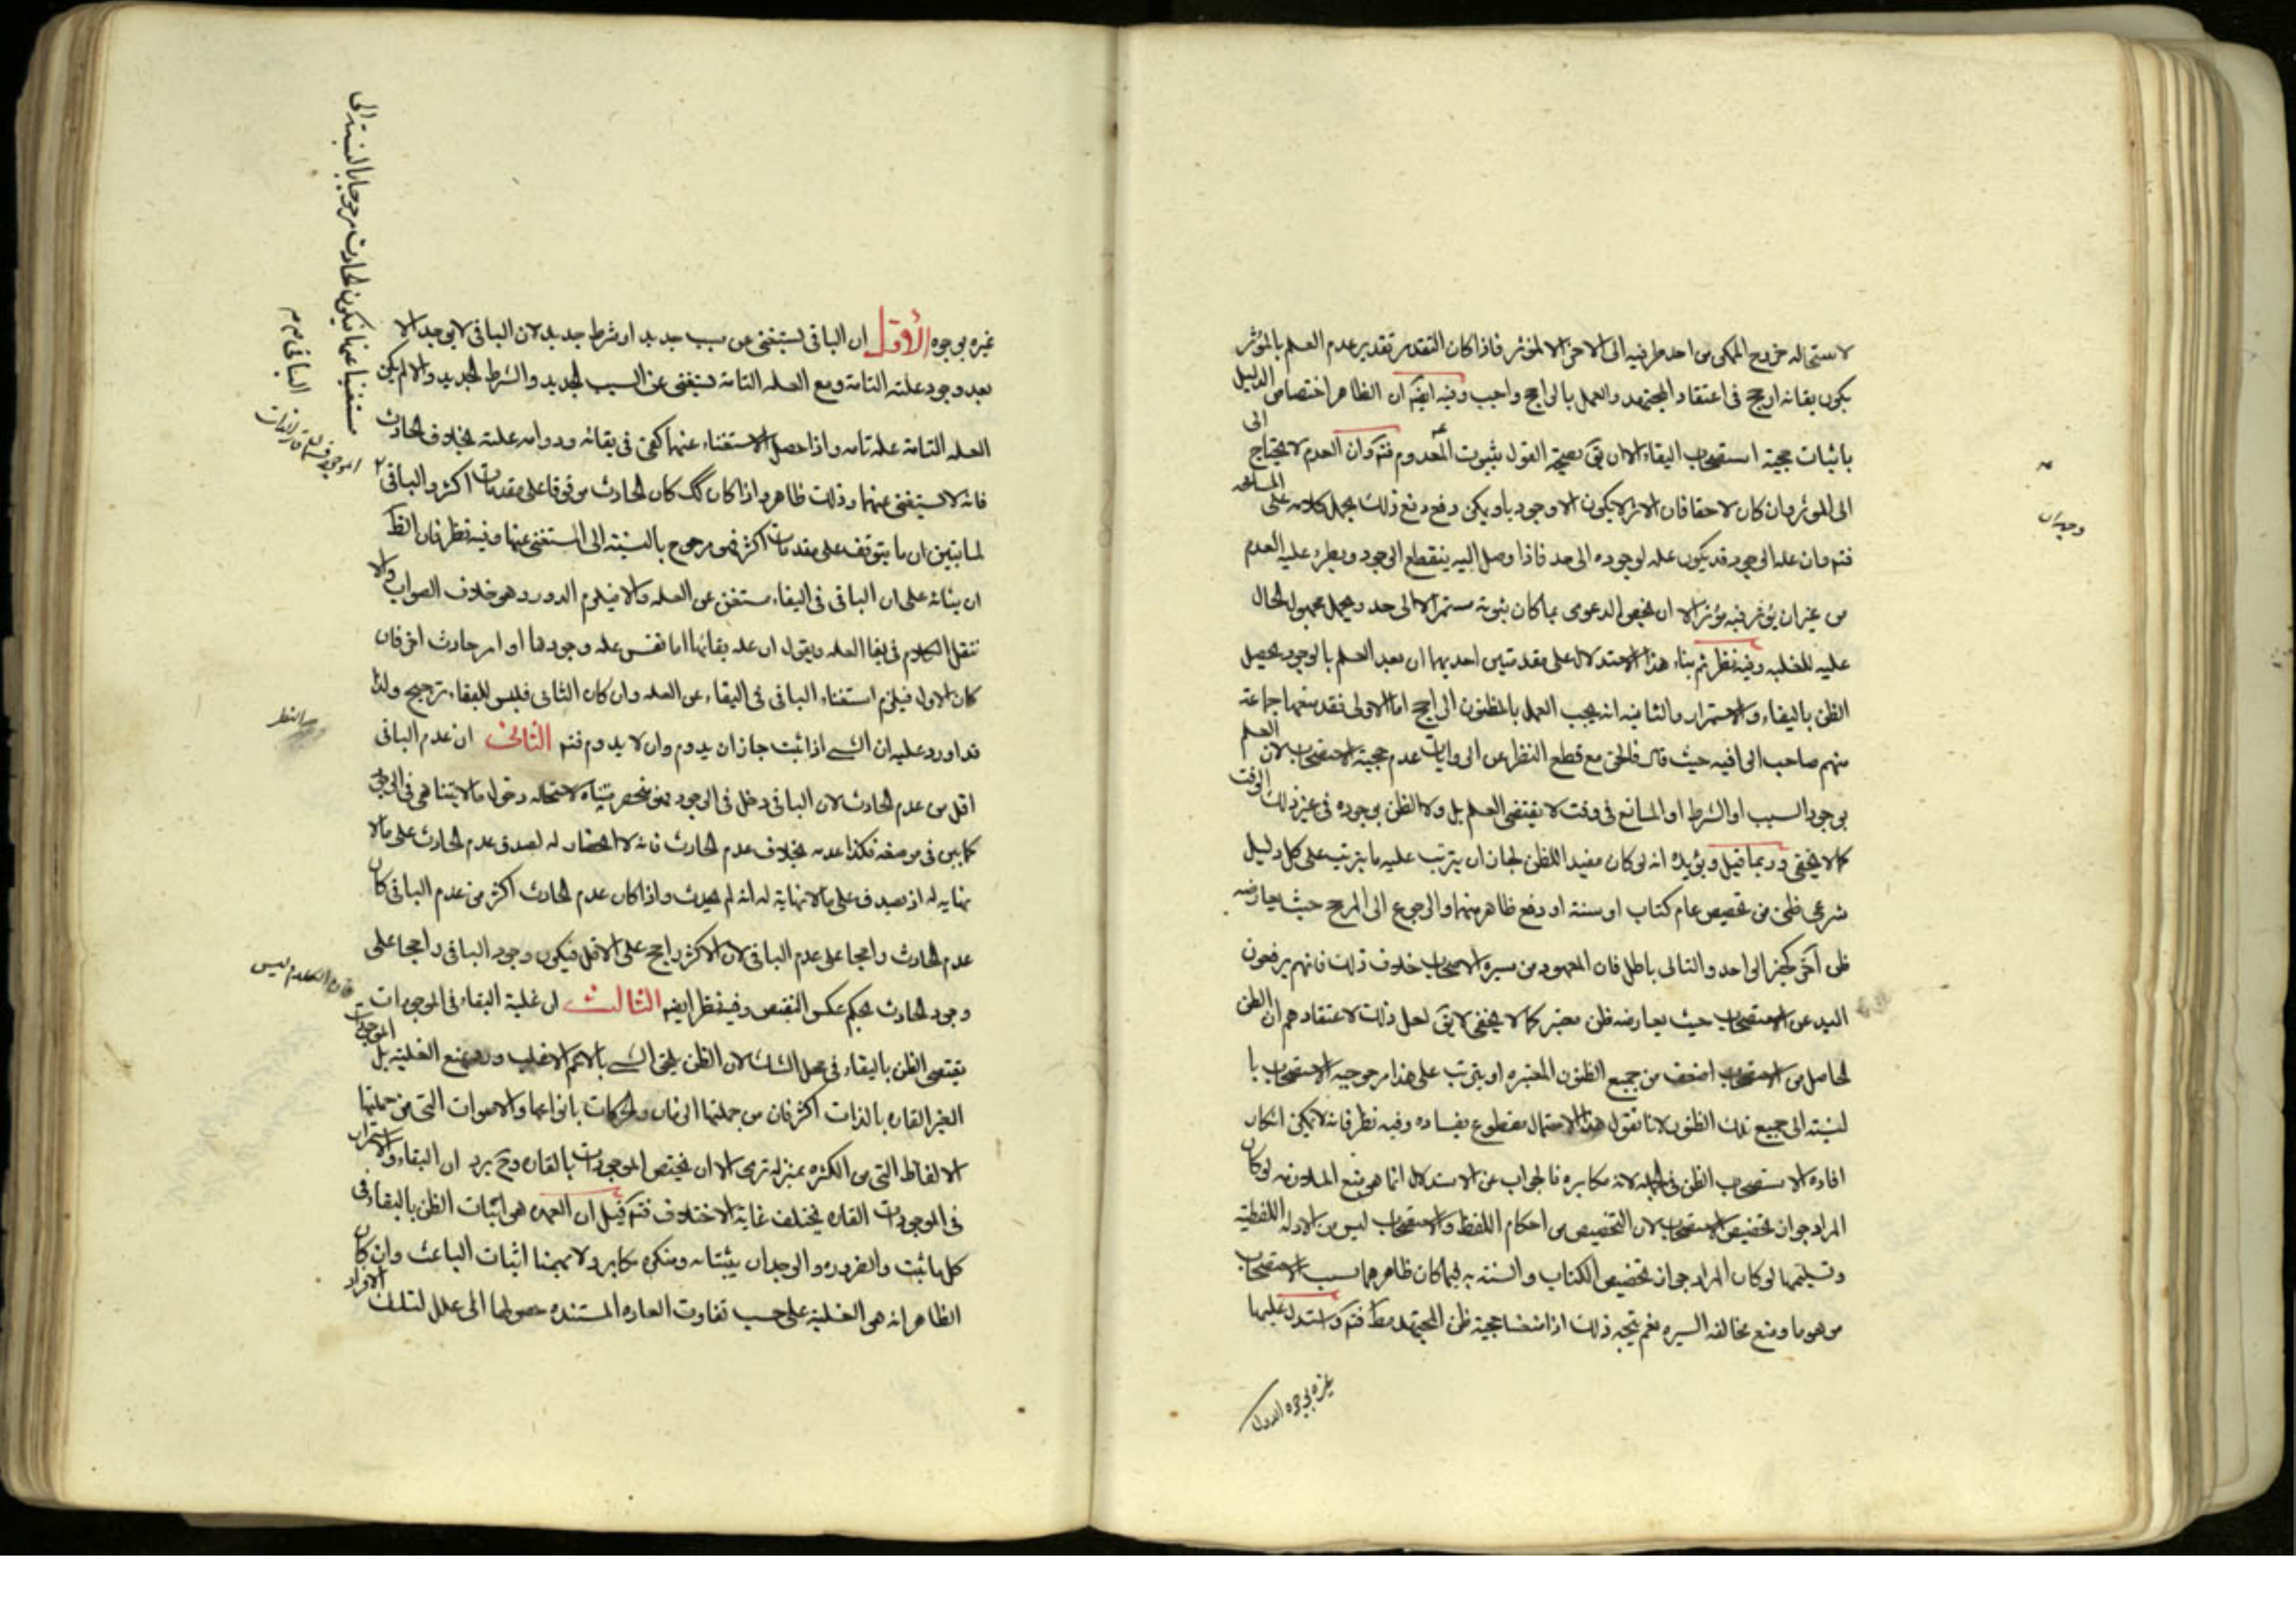 لاستحاله خروج الممكن من احد طرفيه الى الاخر الا لمؤثر فاذا كان التقدير تقدير عدم العلم بالمؤثر
يكون بقائه ارجح في اعتقاد المجتهد والعمل بالراجح واجب وفيه ايضا ان الظاهر اختصاص الدليل
باثبات حجية استصحاب البقاء الا ان يق بصحة القول بثبوت المعدوم فتم وان العدم لا يحتاج الى
الى المؤثر وان كان لاحقا فان الاثر لا يكون الا وجوديا ويمكن دفع دفع ذلك بحمل كلامه على المسامحه
فتم وان عله الوجود قد يكون عله لوجوده الى حد فاذا وصل اليه ينقطع الوجود ويطرء عليه العدم
من غير ان يؤثر فيه مؤثر الا ان يخص الدعوى بما كان ثبوته مستمرا لا الى حد ويحمل مجهول الحال
عليه للغلبه وفيه نظر ثم بناء هذا الاستدلال على مقدمتين احديهما ان بعد العلم بالوجود يحصل
الظن بالبقاء والاستمرار والثانيه انه يجب العمل بالمظنون الراجح اما الاولى فقد منعها جماعة
منهم صاحب الوافيه حيث قال فالحق مع قطع النظر عن الروايات عدم حجية الاستصحاب لان العلم
بوجود السبب او الشرط او المانع في وقت لا يقتضى العلم بل ولا الظن بوجوده في غير ذلك الوقت
كما لا يخفى وربما قيل ويؤيده انه لو كان مفيدا للظن لجاز ان يترتب عليه ما يترتب على كل دليل
شرعى ظنى من تخصيص عام كتاب او سنة او دفع ظاهر منهما والرجوع الى المرجح حيث يعارضه
ظن آخر كخبر الواحد والتالى باطل فان المعهود من سيرة الاصحاب خلاف ذلك فانهم يرفعون
اليد عن الاستصحاب حيث يعارضه ظن معتبر كما لا يخفى لا يق لعل ذلك لاعتقادهم ان الظن
الحاصل من الاستصحاب اضعف من جميع الظنون المعتبره او يترتب على هذا مرجوحيه الاستصحاب با
لنسبته الى جميع تلك الظنون لانا نقول هذا الاحتمال مقطوع بفساده وفيه نظر فانه لا يمكن انكار
افادة الاستصحاب الظن في الجمله لانه مكابره فالجواب عن الاستدلال انما هو بمنع الملازمه لو كان
المراد جواز تخصيص الاستصحاب لان التخصيص من احكام اللفظ والاستصحاب ليس من الادله اللفظية
وتسليمها لو كان المراد جواز تخصيص الكتاب والسنته به فيما كان ظاهرهما بسبب الاستصحاب
موهوما ومنع مخالفه السيره نعم يتجه ذلك اذا منعنا حجية ظن المجتهد مط فتم واستدل عليها
غيره بوجوه الاول
وجدان
غيره بوجوه الأول ان الباقى يستغنى عن سبب جديد او شرط جديد لان الباقى لا يوجد الا
بعد وجود علته التامة ومع العله التامة يستغنى عن السبب الجديد والشرط الجديد والا لم يكن
العله التامة علة تامه واذا حصل الاستغناء عنهما كفى في بقائه ودوامه علته بخلاف الحادث
فانه لا يستغنى عنهما وذلك ظاهر واذا كان كك كان الحادث موقوفا على مقدمات اكثر والباقى
لما تبين ان ما يتوقف على مقدمات اكثر فهو مرجوح بالنسبته الى المستغنى عنها وفيه نظر فان الظ
ان بنائه على ان الباقى في البقاء مستغن عن العله والا فيلزم الدور وهو خلاف الصواب والا
ننقل الكلام في بقا العله ويقول ان عله بقائها اما نفس عله وجودها او امر حادث اخر فان
كان الاول فيلزم استغناء الباقى في البقاء عن العله وان كان الثانى فليس للبقاء ترجيح ولذا
قد اورد عليه ان الشيء اذا ثبت جاز ان يدوم وان لا يدوم فتم الثانى ان عدم الباقى
اقل من عدم الحادث لان الباقى دخل في الوجود فهو منحصر متناه لاستحاله دخول ما لا يتناهى في الوجود
كما بين في موضعه فكذا عدمه بخلاف عدم الحادث فانه لا انحصار له لصدق عدم الحادث على ما لا
نهايه له اذ يصدق على ما لا نهاية له انه لم يحدث واذا كان عدم الحادث اكثر من عدم الباقى كان
عدم الحادث راجحا على عدم الباقى لان الاكثر راجح على الاقل فيكون وجود الباقى راجحا على
وجود الحادث بحكم عكس النقيض وفيه نظر ايضا الثالث ان غلبة البقاء في الموجودات
يقتضى الظن بالبقاء في محل الشك لان الظن يلحق الشيء بالاعم الاغلب ورد بمنع الغلبته بل الموجودات
الغير القاره بالذات اكثر فان من جملتها الزمان والحركات بانواعها والاصوات التى من جملتها
الالفاظ التى من الكثره بمنزله ترى الا ان يختص الموجودات بالقاره وح يرد ان البقاء والاستمرار
في الموجودات القاره يختلف غاية الاختلاف فتم قيل ان العمده هو اثبات الظن بالبقاء في
كل ما ثبت والضروره والوجدان يثبتانه ومنكره مكابر ولا يهمنا اثبات الباعث وان كان
الظاهر انه هو الغلبته على حسب تفاوت العاده المستنده حصولها الى علل لتلك الافراد
مستغنيا عنها فيكون الحادث مرجوحا بالنسبته الى
الباقى
النظر
فان الكلام ليس